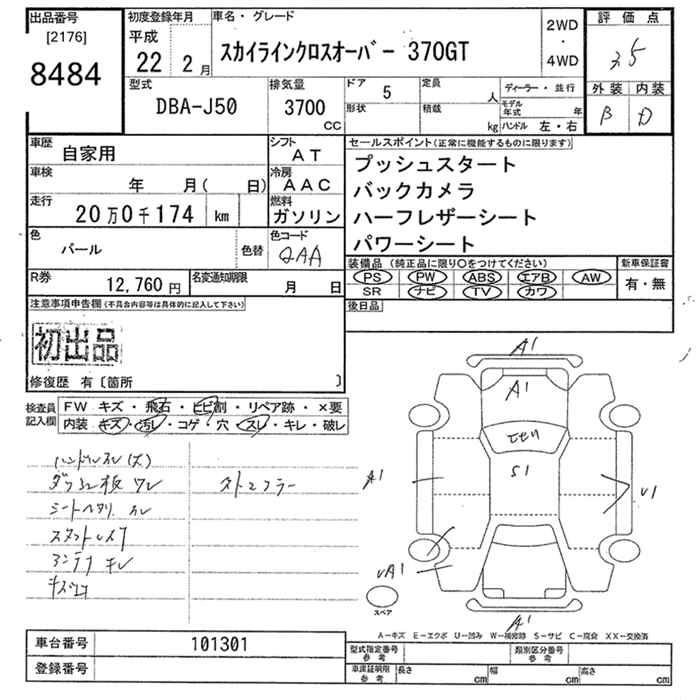 出品番号
[2176]
8484
初度登録年月
平成
22 2 月
車名・グレード
スカイラインクロスオーバー 370GT
2WD
・
4WD
評価点
3 5
外装 内装
B D
型式
DBA-J50
排気量
3700
CC
ドア 5
形状
定員 人
積載 kg
ディーラー・並行
モデル年式 年
ハンドル 左・右
車歴 自家用
シフト AT
車検 年 月( 日)
冷房 AAC
走行 20万0千174 km
燃料 ガソリン
色 パール
色替
色コード QAA
R券 12,760 円
名変通知期限 月 日
セールスポイント(正常に機能するものに限ります)
プッシュスタート
バックカメラ
ハーフレザーシート
パワーシート
装備品 (純正品に限り○をつけてください)
PS PW ABS エアB AW
SR ナビ TV カワ
新車保証書
有・無
後日品
注意事項申告欄(不具合内容等は具体的に記入して下さい)
初出品
修復歴 有〔箇所 〕
検査員記入欄
FW キズ・飛石・ヒビ割・リペア跡・×要
内装 キズ・汚レ・コゲ・穴・スレ・キレ・破レ
ハンドルスレ(大)
A1
A1
S1
A1
U1
UA1
A1
スペア
A-キズ E-エクボ U-凹み W-補修跡 S-サビ C-腐食 XX-交換済
車台番号 101301
登録番号
型式指定番号 参考
類別区分番号 参考
車庫証明用 参考
長さ cm 幅 cm 高さ cm